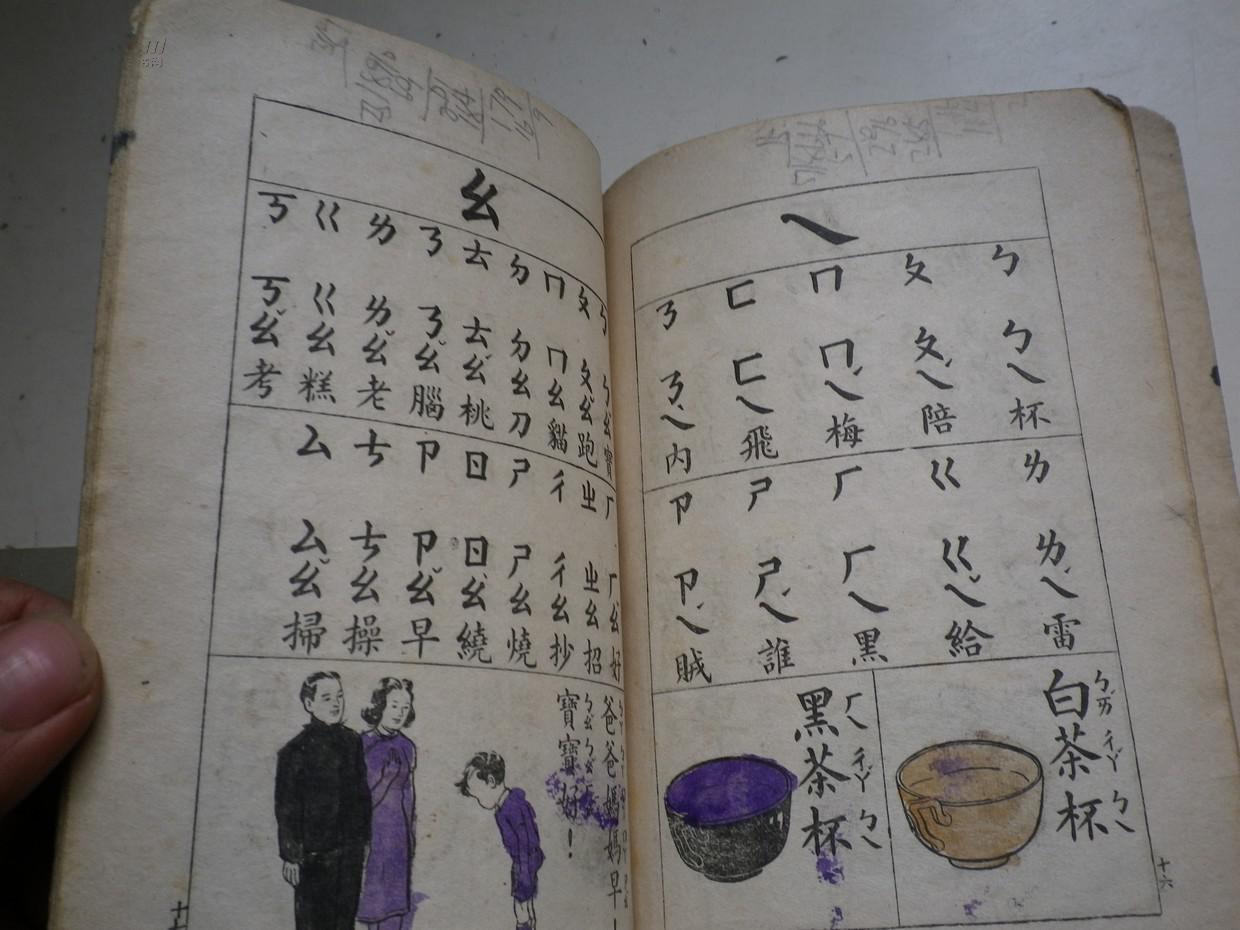 ㄟ
ㄅ ㄆ ㄇ ㄈ ㄋ
ㄅㄟ杯
ㄆㄟˊ陪
ㄇㄟˊ梅
ㄈㄟ飛
ㄋㄟˋ內
ㄌ ㄍ ㄏ ㄕ ㄗ
ㄌㄟˊ雷
ㄍㄟˇ給
ㄏㄟ黑
ㄕㄟˊ誰
ㄗㄟˊ賊
白茶杯
ㄅㄞˊ ㄔㄚˊ ㄅㄟ
黑茶杯
ㄏㄟ ㄔㄚˊ ㄅㄟ
十六
ㄠ
ㄅ ㄆ ㄇ ㄉ ㄊ ㄋ ㄌ ㄍ ㄎ
ㄅㄠˇ寶
ㄆㄠˇ跑
ㄇㄠ貓
ㄉㄠ刀
ㄊㄠˊ桃
ㄋㄠˇ腦
ㄌㄠˇ老
ㄍㄠ糕
ㄎㄠˇ考
ㄏ ㄓ ㄔ ㄕ ㄖ ㄗ ㄘ ㄙ
ㄏㄠˇ好
ㄓㄠ招
ㄔㄠ抄
ㄕㄠ燒
ㄖㄠˋ繞
ㄗㄠˇ早
ㄘㄠ操
ㄙㄠˇ掃
爸爸媽媽早！
寶寶好！